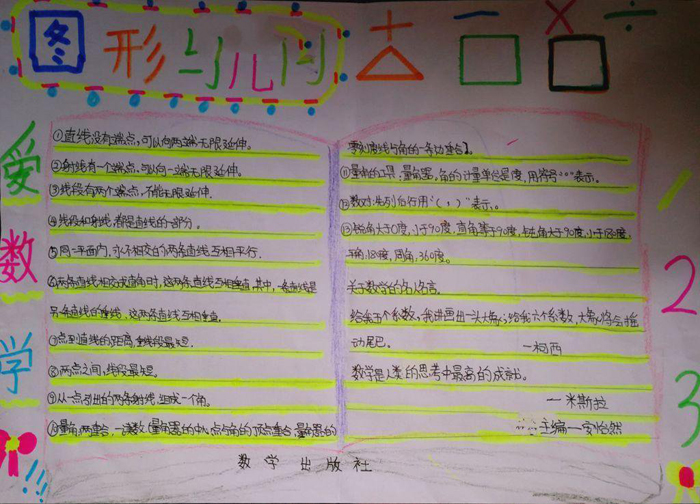 图形与几何
+ − × ÷
爱数学!!
1 2 3
①直线没有端点,可以向两端无限延伸。
②射线有一个端点,可以向一端无限延伸。
③线段有两个端点,不能无限延伸.
④线段和射线,都是直线的一部分。
⑤同一平面内,永不相交的两条直线互相平行.
⑥两条直线相交成直角时,这两条直线互相垂直,其中,一条直线是
另一条直线的垂线,这两条直线互相垂直.
⑦点到直线的距离,垂线段最短.
⑧两点之间,线段最短。
⑨从一点引出的两条射线组成一个角。
⑩量角,两重合,一读数(量角器的中心点与角的顶点重合,量角器的
零刻度线与角的一条边重合).
⑪量角的工具:量角器,角的计量单位是度,用符号“°”表示。
⑫数对:先列后行用“( , )”表示。
⑬锐角大于0度,小于90度,直角等于90度,钝角大于90度,小于180度,
平角,180度,周角,360度。
关于数学的名人名言。
给我五个系数,我讲画出一头大象;给我六个系数,大象将会摇
动尾巴。 —柯西
数学是人类的思考中最高的成就。
—米斯拉
主编—安怡然
数学出版社